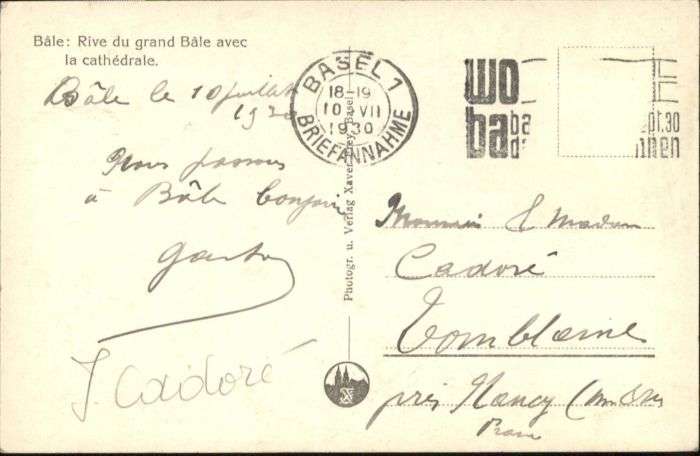 Bâle: Rive du grand Bâle avec
la cathédrale.
Bâle le 10 juillet
1930
Nous passons
à Bâle bonjour
J. Cadoré
Photogr. u. Verlag Xaver Frey, Basel
BASEL 1
18-19
10 VII
1930
BRIEFANNAHME
WO
BA
Monsieur & Madame
Cadoré
Tomblaine
près Nancy